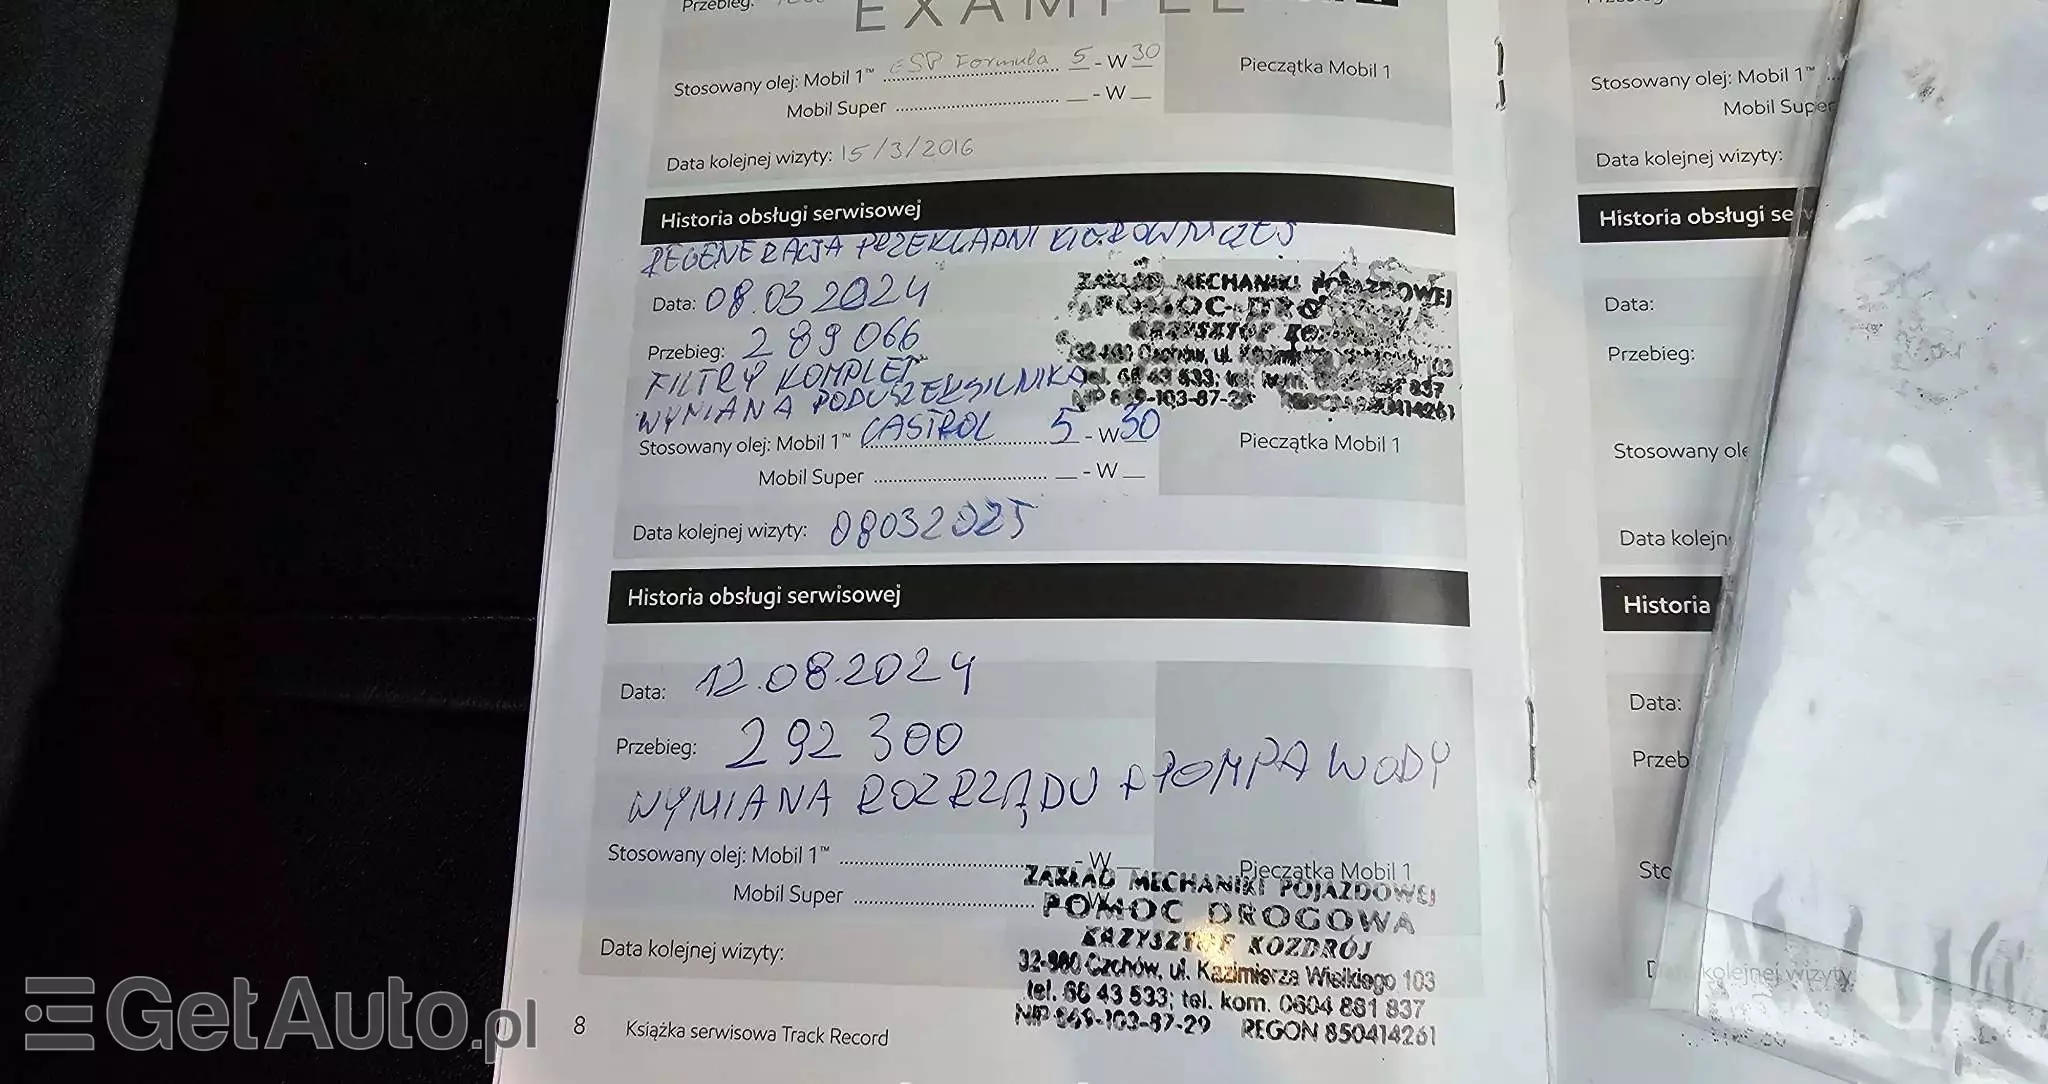 Przebieg:
EXAMPLE
Stosowany olej: Mobil 1™ ESP Formula 5 - W 30
Mobil Super - W
Pieczątka Mobil 1
Data kolejnej wizyty: 15/3/2016
Historia obsługi serwisowej
REGENERACJA PRZEKŁADNI KIEROWNICZEJ
Data: 08.03 2024
Przebieg: 289 066
FILTRY KOMPLET
WYMIANA PODUSZEK SILNIKA
ZAKŁAD MECHANIKI POJAZDOWEJ
POMOC DRO
KRZYSZTOF
Stosowany olej: Mobil 1™ CASTROL 5 - W 30
Mobil Super - W
Pieczątka Mobil 1
Data kolejnej wizyty: 08032025
Historia obsługi serwisowej
Data: 12.08.2024
Przebieg: 292 300
WYMIANA ROZRZĄDU + POMPA WODY
Stosowany olej: Mobil 1™ - W
Mobil Super - W
Pieczątka Mobil 1
ZAKŁAD MECHANIKI POJAZDOWEJ
POMOC DROGOWA
KRZYSZTOF KOZDRÓJ
32-860 Czchów, ul. Kazimierza Wielkiego 103
tel. 66 43 533; tel. kom. 0604 881 837
NIP 869-103-87-29 REGON 850414261
Data kolejnej wizyty:
8 Książka serwisowa Track Record
Stosowany olej: Mobil 1™
Mobil Super
Data kolejnej wizyty:
Historia obsługi se
Data:
Przebieg:
Stosowany ole
Data kolejn
Historia
Data:
Przeb
Sto
kolejnej wizyty:
GetAuto.pl